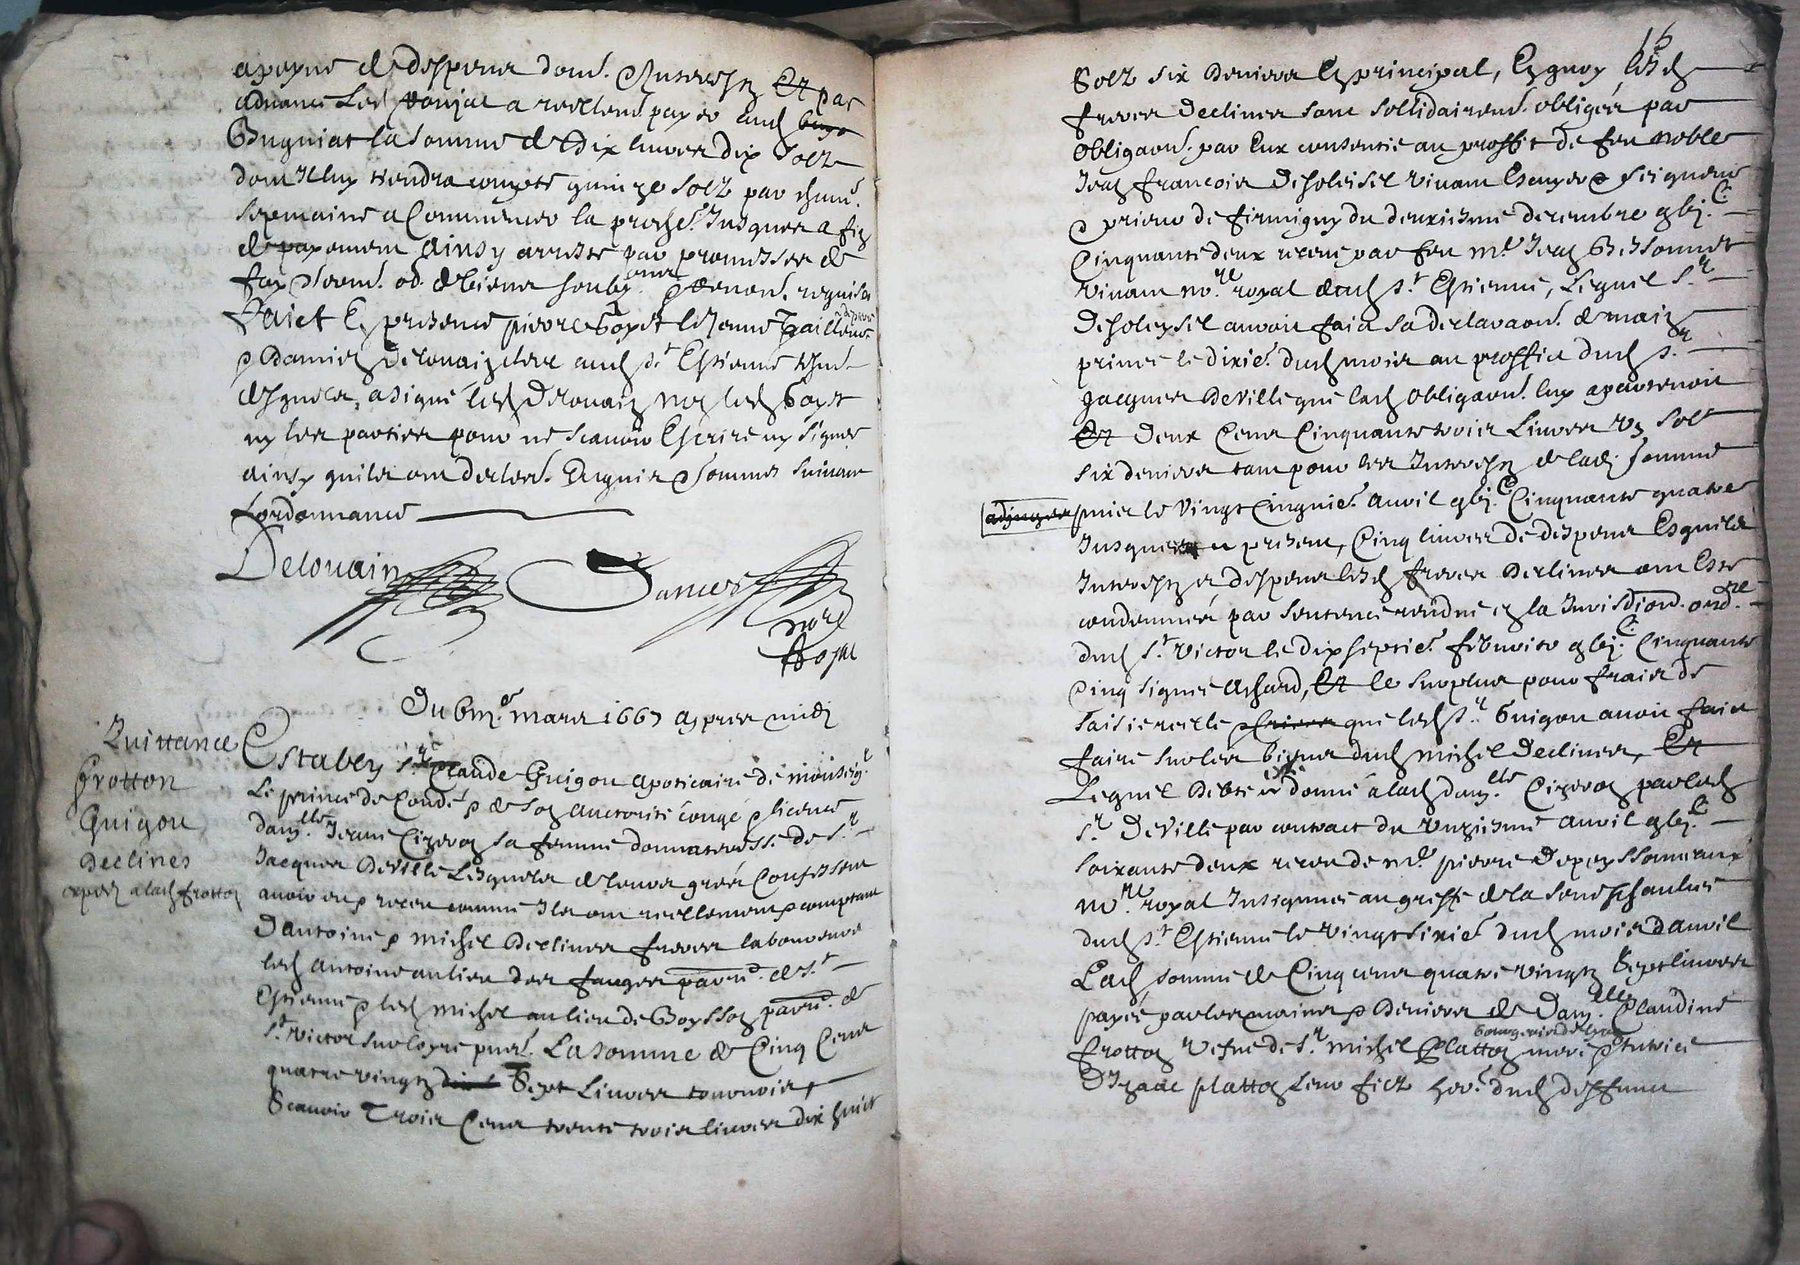 a payne de despens dom. Interestz Et par
advance led Poujat a reellem. payé aud
Bugniat la somme de dix livres dix solz
dont il luy tiendra compte quinze solz par chune.
sepmaine a commencer la proche. Jusques a fin
de payement Ainsy arresté par promesses de
foy serem. ob. de biens soubz. renon. requises
Faict En presence pierre Boyst le Jeune Tailleur
& Damien Delouain clerc aud St Estienne tesm.
desquelz, a signé led Delouain non led Boyst
ny les parties pour ne scavoir Escrire ny signer
ainsy quilz ont declaré. Enquis & sommés suivant
Lordonnance
Delouain
Dances
nore
Royal
Du 6me. mars 1667 apres midi
Quittance
Grotton
Guigou
Declines
exped a lad frotton
Establys sr Claude Guigou Apoticaire de monseigr
Le prince de Condé & de son auctorité congé & licence
damlle Jeanne Cizeron sa femme donnateresse de Sr
Jacques Deville Lesquelz de leurs grées Confessent
avoir eu & receu comme Ilz ont reellement & comptant
Dantoine & Michel Declines freres laboureurs
led Antoine au lieu des fauges parre. de St
Estienne & led Michel au lieu de Boysson parre. de
St Victor sur loyre pnts. La somme de Cinq Cens
quatre vingtz Sept Livres tournois
Scavoir Trois Cens trente trois livres dix huict
16
Solz six deniers En principal, En quoy lesd
freres Declines sont sollidairem. obligés par
obligaon. par Eux consentie au proffit de feu noble
Jean francois Desoleisel vivant Escuyer & seigneur
& prieur de firmigny du deuxiesme decembre gbj.C
Cinquante deux receue par feu Me Jean Bessonnet
vivant nore. royal dud St Estienne, Lequel Sr
Desoleysel auroit faict sa declaraon. de main
privée le dixie. dud mois au proffict dud Sr
Jacques Deville que lad obligaon. luy apartenoit
Et deux Cens Cinquante trois Livres un sol
six deniers tant pour les Interestz de lad somme
puis le vingt Cinquie. Avril gbj.C Cinquante quatre
Jusques a present, Cinq livres de despens Esquelz
Interestz et despens lesd freres Declines ont Esté
condemnés par sentence rendue en la Jurisdiction ordre.
dud St Victor le dix septie. febvrier gbj.C Cinquante
Cinq signée Achard, Et le surplus pour fraix de
saisie reelle que led Sr Guigou avoit faict
faire sur les biens dud Michel Declines, Et
Lequel debte donné a lad damlle Cizeron par led
Sr Deville par contract du unziesme Avril gbj.C
soixante deux receu de Me pierre Depeyssonneaux
nore. royal Insignué au greffe de la senechaulcée
dud St Estienne le vingt sixie. dud mois davril
Lad somme de Cinq cens quatre vingtz Sept livres
payée par les mains & deniers de Damlle Claudine
bourgeois de Lyon
frotton vefve de Sr Michel Platton mere & tutrice
DIzaac platton leur filz her. dud deffunct